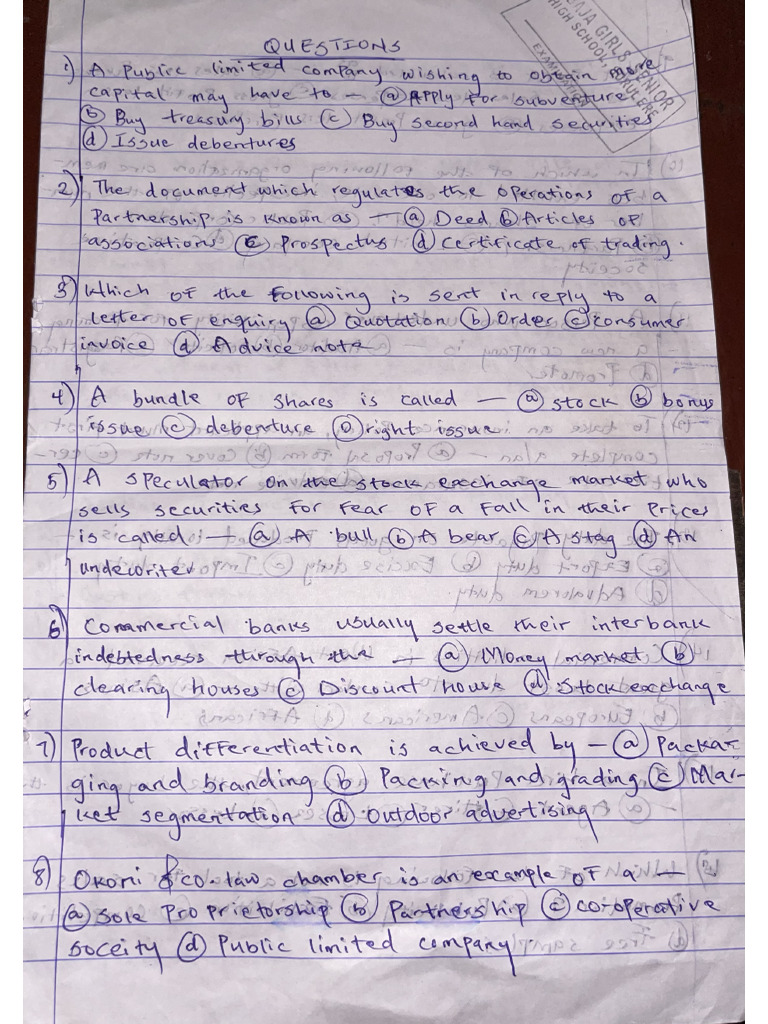 QUESTIONS
1) A Public limited company wishing to obtain more
capital may have to — (a) Apply for subventure
(b) Buy treasury bills (c) Buy second hand securities
(d) Issue debentures
2) The document which regulates the operations of a
Partnership is known as — (a) Deed (b) Articles of
associations (c) Prospectus (d) Certificate of trading.
3) Which of the following is sent in reply to a
letter of enquiry (a) Quotation (b) Order (c) consumer
invoice (d) Advice note
4) A bundle of shares is called — (a) stock (b) bonus
issue (c) debenture, (D) right issue
5) A speculator on the stock exchange market who
sells securities for fear of a fall in their prices
is called — (a) A bull (b) A bear (c) A stag (d) An
underwriter
6) Commercial banks usually settle their interbank
indebtedness through the — (a) Money market, (b)
clearing houses (c) Discount house (d) Stock exchange
7) Product differentiation is achieved by — (a) Packa-
ging and branding (b) Packing and grading, (c) Mar-
ket segmentation (d) outdoor advertising
8) Okoni & co. law chamber is an example of a —
(a) sole proprietorship (b) Partnership (c) co-operative
soceity (d) Public limited company
GIRLS
HIGH SCHOOL,